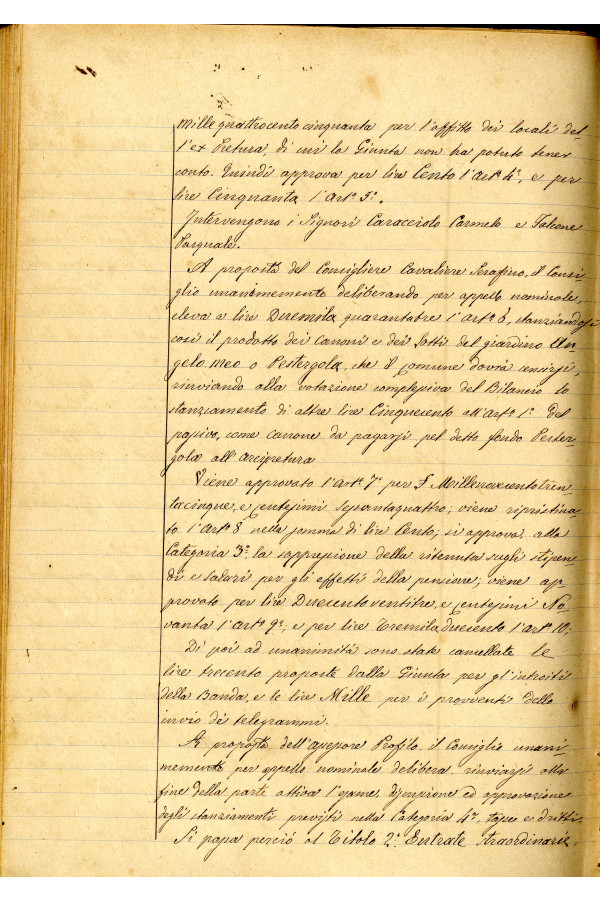 Mille quattrocento cinquanta per l'affitto dei locali del-
l'ex Pretura, di cui la Giunta non ha potuto tener
conto. Quindi approva per lire Cento l'Art.º 4º, e per
lire Cinquanta l'Artº 5º.
Intervengono i Signori Caracciolo Carmelo e Falcone
Pasquale.
A proposta del Consigliere Cavaliere Serafino, il Consi-
glio unanimemente deliberando per appello nominale,
eleva a lire Duemila quarantatre l'Artº 6, stanziandosi
così il prodotto dei canoni e dei lotti del giardino An-
gelo meo o Pestergola, che il Comune dovrà censirsi,
rinviando alla votazione complessiva del Bilancio lo
stanziamento di altre lire Cinquecento all'Artº 1º del
passivo, come canone da pagarsi pel detto fondo Pester-
gola all'Arcipretura
Viene approvato l'Artº 7º per £ Millenovecentotren-
tacinque, e centesimi sessantaquattro; viene ripristina-
to l'Artº 8 nella somma di lire Cento; si approva, alla
Categoria 3ª, la soppressione della ritenuta sugli stipen-
di e salari per gli effetti della pensione; viene ap-
provato per lire Duecento ventitre, e centesimi No-
vanta l'Artº 9º, e per lire Tremiladuecento l'Artº 10;
Di poi ad unanimità sono state cancellate le
lire trecento proposte dalla Giunta per gl'introiti
della Banda, e le lire Mille per i proventi dello
invio dei telegrammi.
A proposta dell'assessore Profilo il Consiglio unani-
memente per appello nominale delibera rinviarsi alla
fine della parte attiva l'esame, discussione ed approvazione
degli stanziamenti previsti nella Categoria 4ª, tasse e diritti.
Si passa perciò al Titolo 2º Entrate straordinarie.